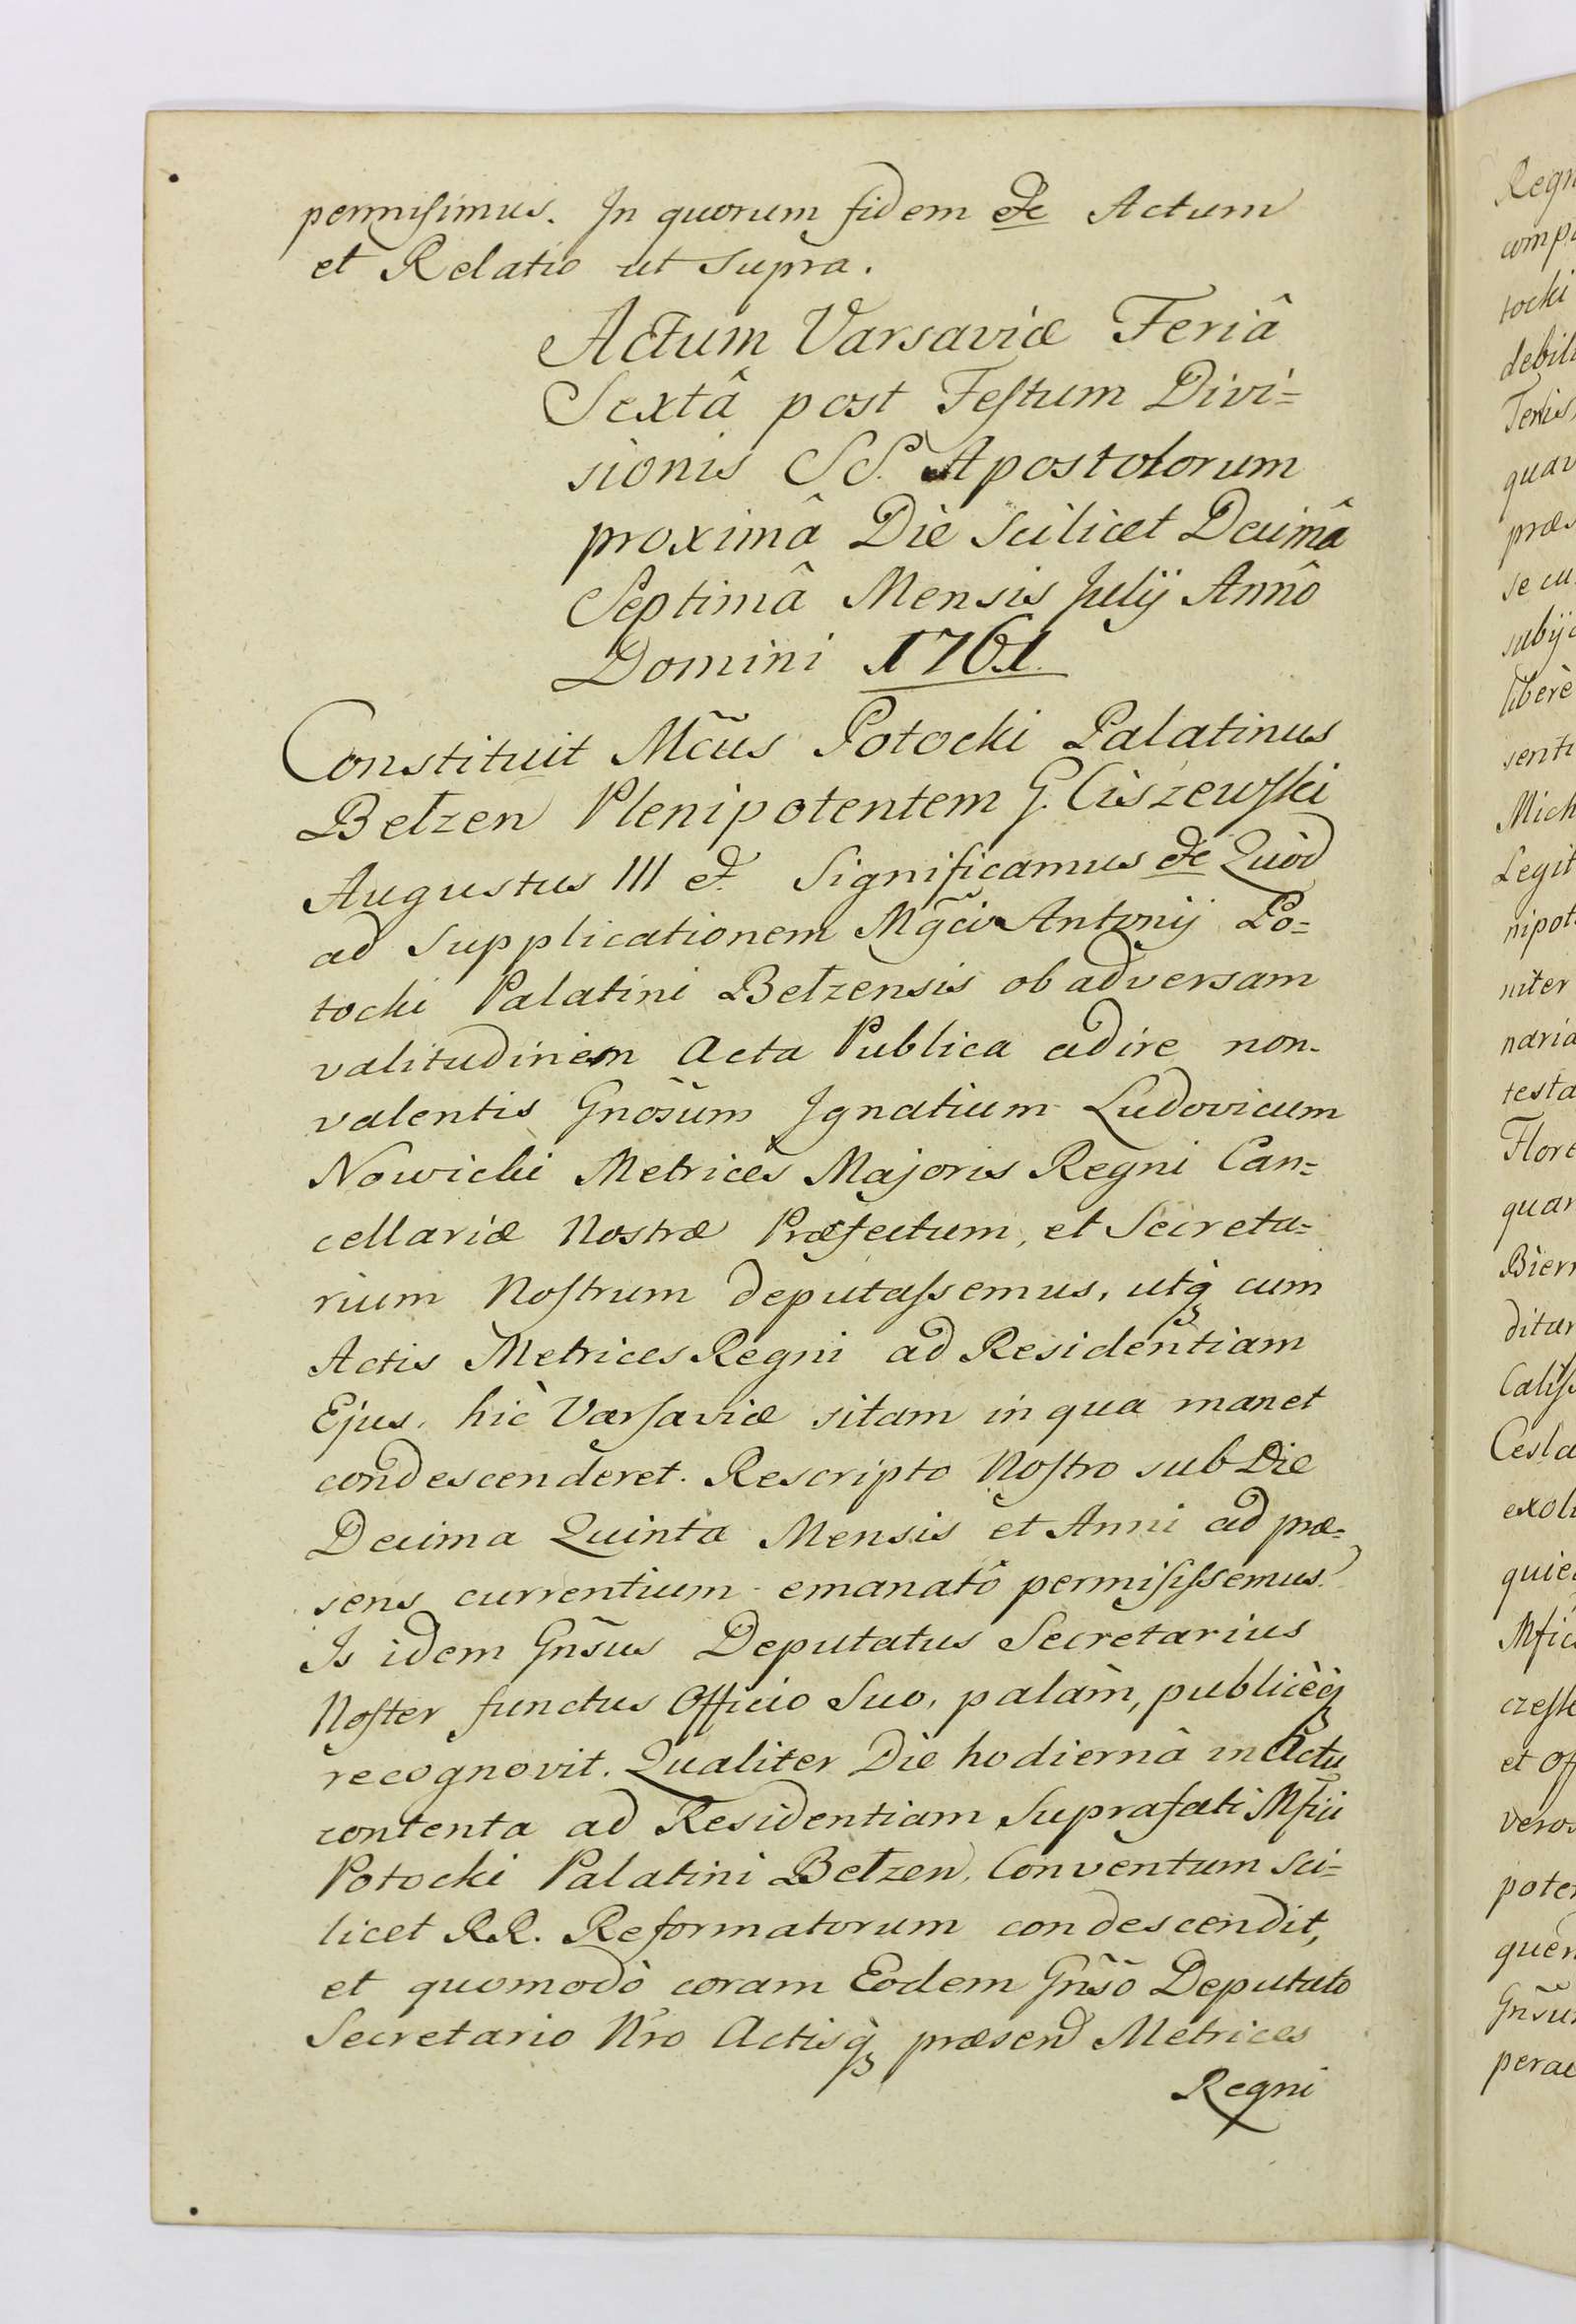 permisimus. In quorum fidem etc Actum
et Relatio ut supra.
Actum Varsaviæ Feriâ
Sextâ post Festum Divi=
sionis SS. Apostolorum
proximâ Die scilicet Decimâ
Septimâ Mensis Julij Annô
Domini 1761.
Constituit Mcũs Potocki Palatinus
Bełzen Plenipotentem G. Ciszewski
Augustus III et. Significamus etc Quòd
ad supplicationem Mgci Antonij Po=
tocki Palatini Bełzensis ob adversam
valitudinem Acta Publica adire non
valentis Gnosum Ignatium Ludovicum
Nowicki Metrices Majoris Regni Can=
cellariæ Nostræ Præfectum, et Secreta=
rium Nostrum deputassemus, utq cum
Actis Metrices Regni ad Residentiam
Ejus, hic Varsaviæ sitam in qua manet
condescenderet. Rescripto Nostro sub Die
Decima Quinta Mensis et Anni ad præ=
sens currentium emanatô permisissemus.
Is idem Gnsus Deputatus Secretarius
Noster functus Officio suo, palàm, publicèq
recognovit. Qualiter Die hodiernâ in Actu
contenta ad Residentiam suprafati Mfici
Potocki Palatini Bełzen, Conventum sci=
licet RR. Reformatorum condescendit,
et quomodò coram Eodem Gnso Deputato
Secretario Nro Actisq præsen Metrices
Regni
Regn
comp
tocki
debil
quav
præs
se cu
subij
liberè
senti
Mich
Legit
nipot
niter
naria
testa
Flore
quar
Bier
ditar
Caliss
Cesla
exol
quie
Mfic
et off
veros
pote
quen
Gnsu
perac